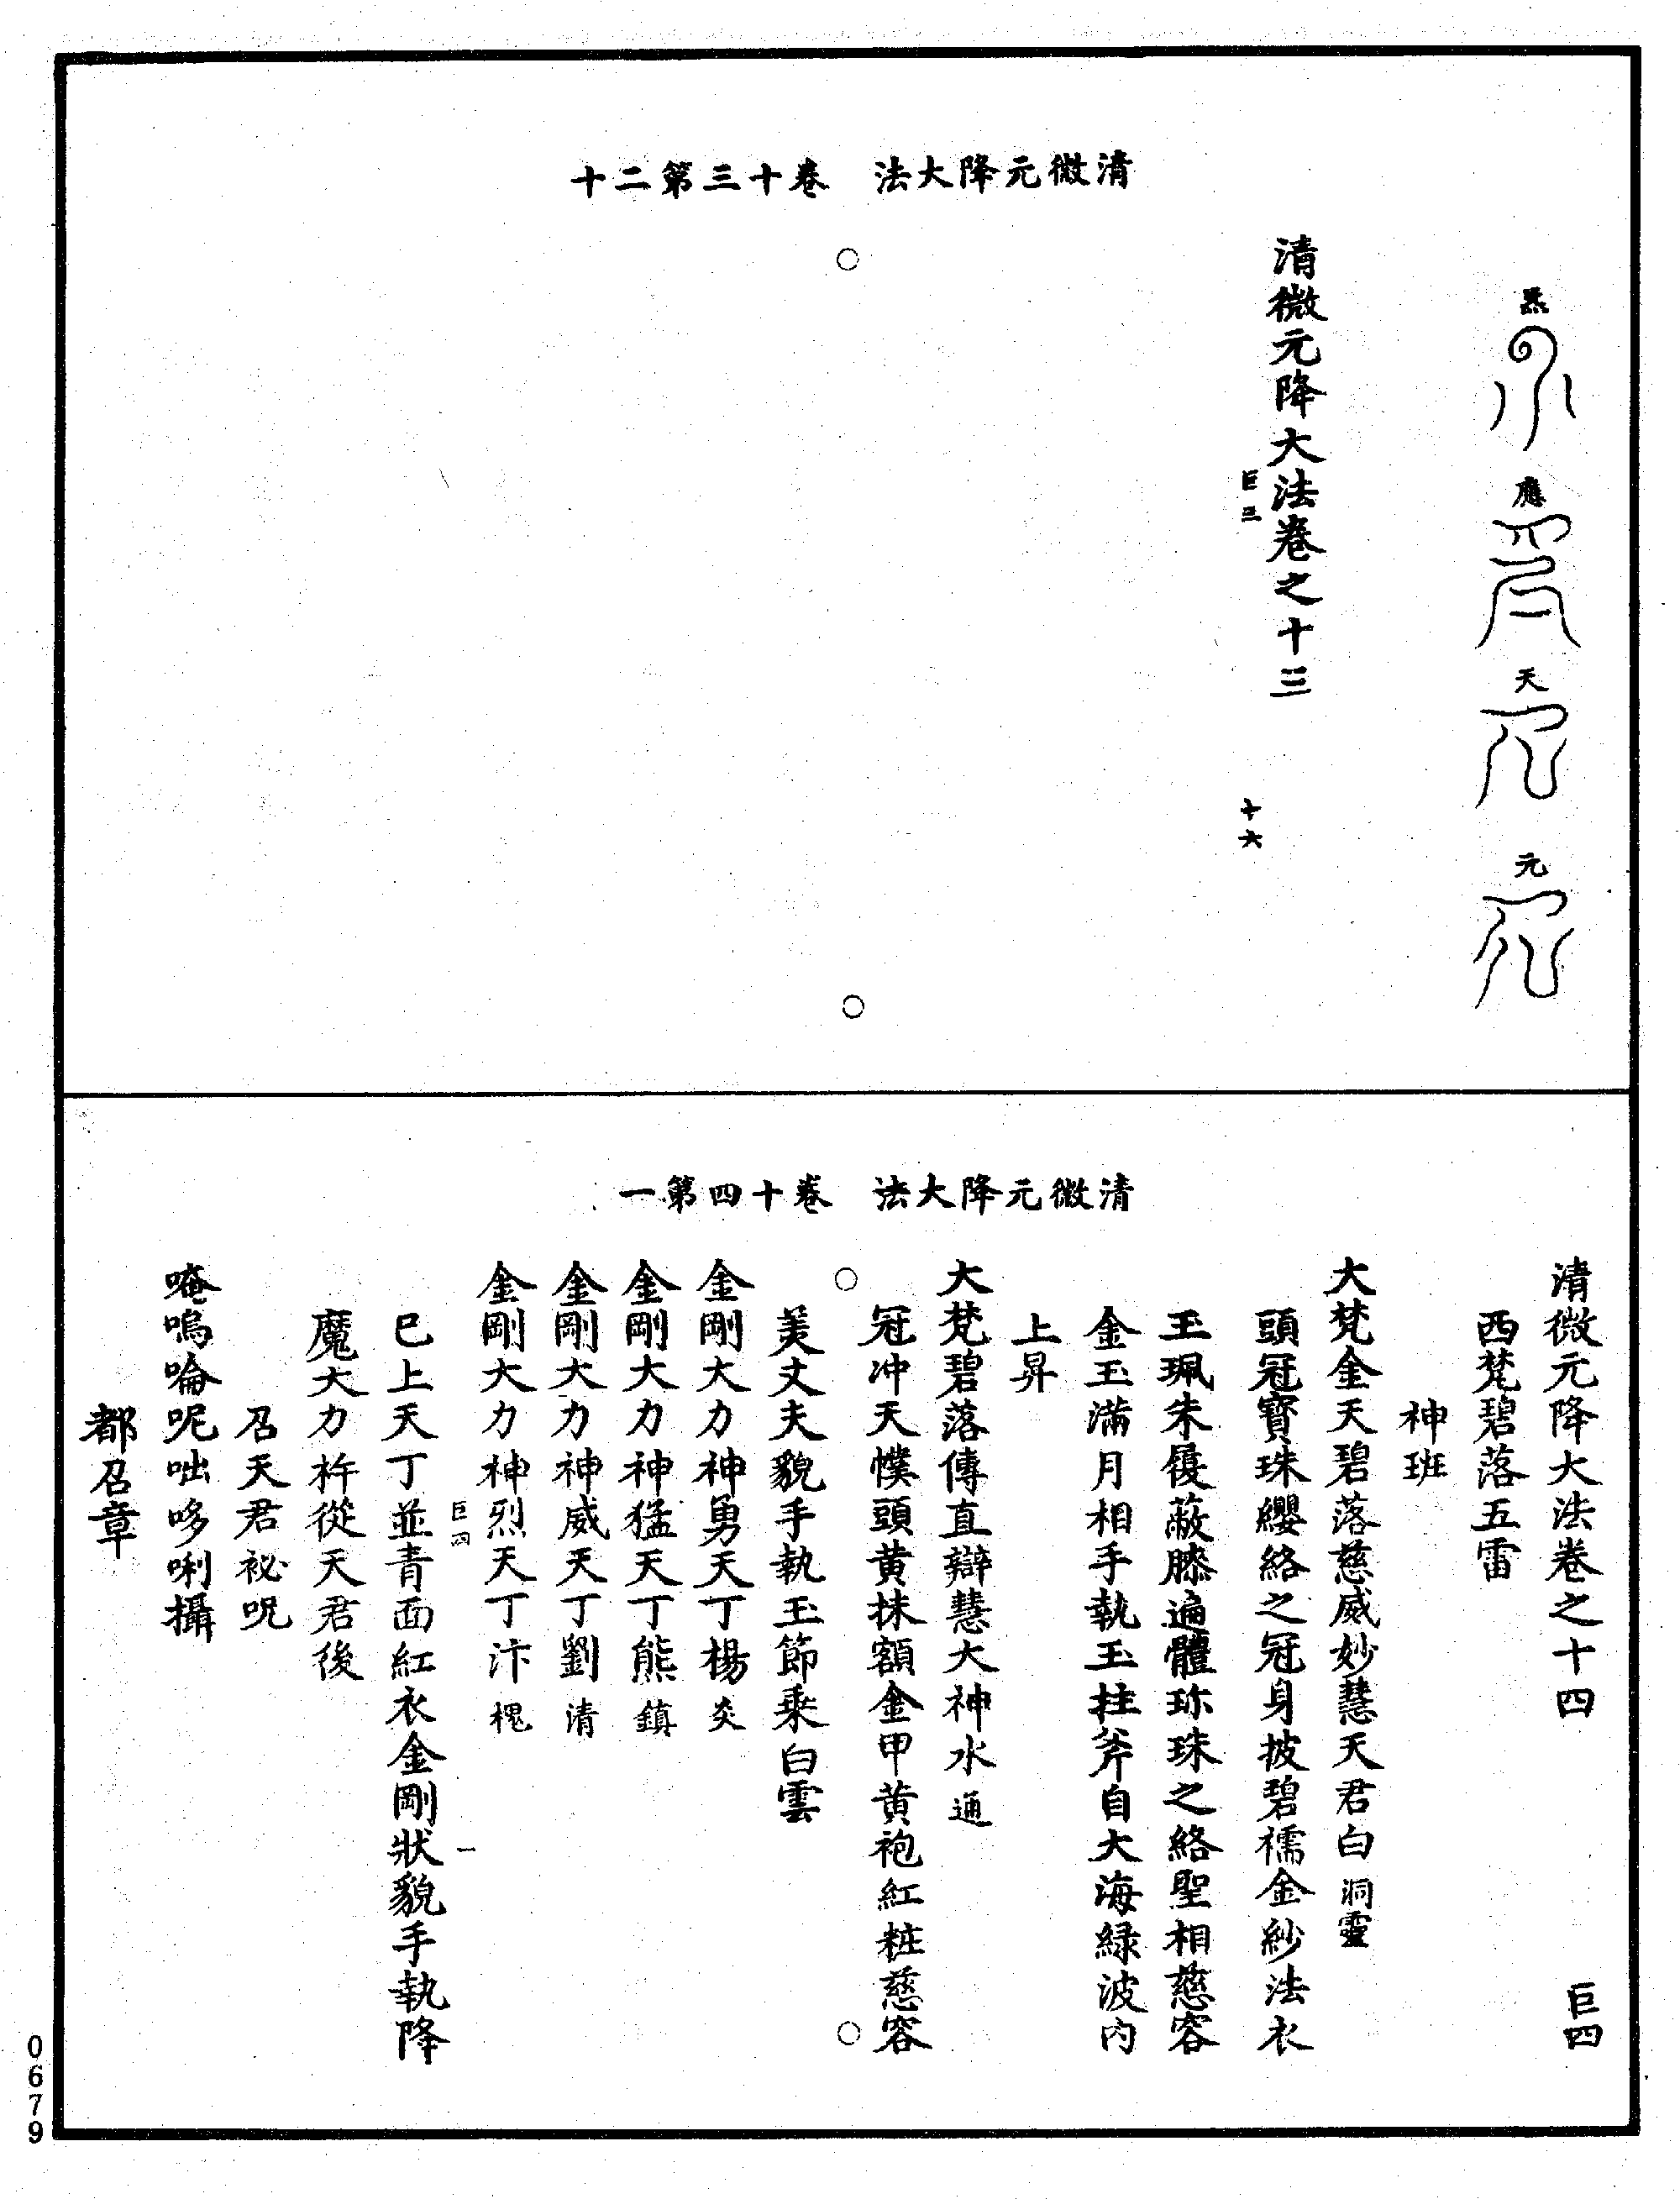 清微元降大法　卷十三第二十
炁
應
天
元
清微元降大法卷之十三
巨三　十六
清微元降大法　卷十四第一
清微元降大法卷之十四　巨四
西梵碧落五雷
神班
大梵金天碧落慈威妙慧天君白洞靈
頭冠寶珠纓絡之冠身披碧襦金紗法衣
玉珮朱履蔽膝遍體珎珠之絡聖相慈容
金玉滿月相手執玉拄斧自大海綠波内
上昇
大梵碧落傳直辯慧大神水通
冠冲天幞頭黄抹額金甲黄袍紅粧慈容
美丈夫貌手執玉節乘白雲
金剛大力神勇天丁楊炎
金剛大力神猛天丁熊鎮
金剛大力神威天丁劉清
金剛大力神烈天丁汴槐
巨四　一
巳上天丁並青面紅衣金剛狀貌手執降
魔大力杵從天君後
召天君祕呪
唵嗚㖮呢咄哆唎攝
都召章
0679